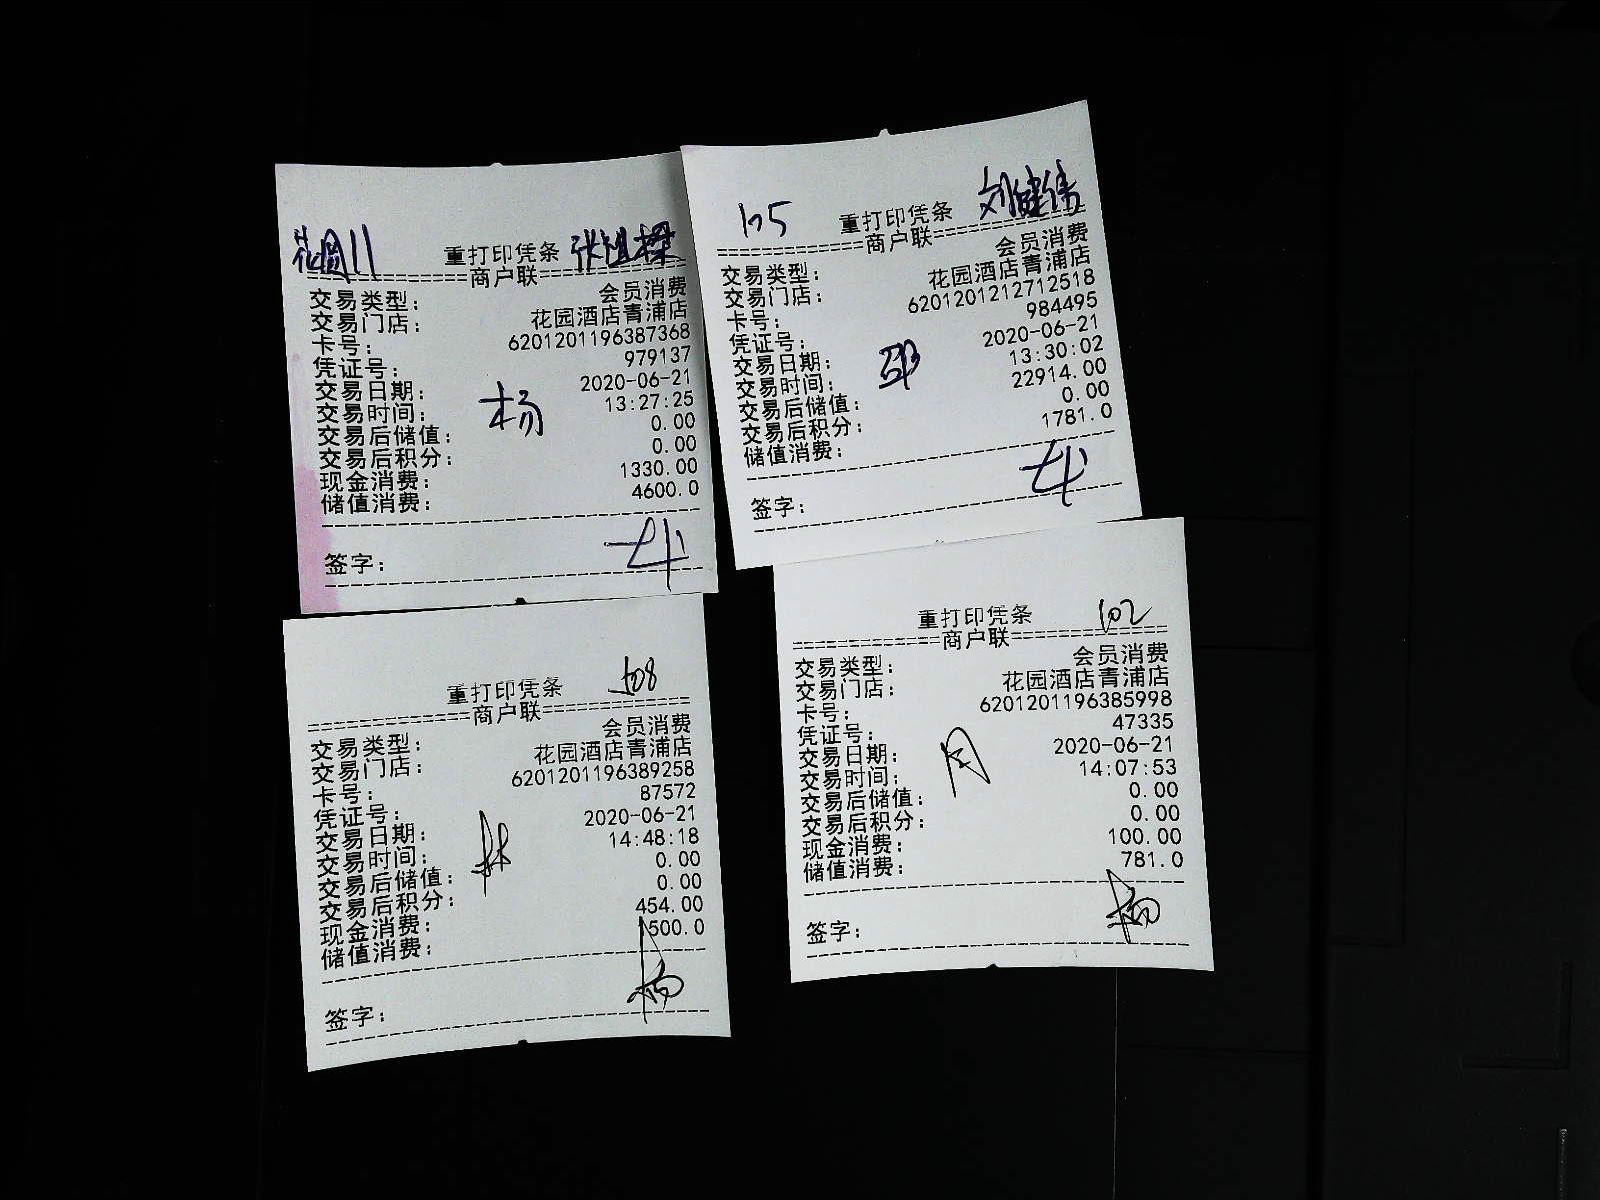 花圆11 重打印凭条
商户联
交易类型: 会员消费
交易门店: 花园酒店青浦店
卡号: 6201201196387368
凭证号: 979137
交易日期: 2020-06-21
交易时间: 13:27:25
杨
交易后储值: 0.00
交易后积分: 0.00
现金消费: 1330.00
储值消费: 4600.0
签字:
105 重打印凭条 刘健伟
商户联
交易类型: 会员消费
交易门店: 花园酒店青浦店
卡号: 6201201212712518
凭证号: 984495
交易日期: 2020-06-21
交易时间: 13:30:02
邵
交易后储值: 22914.00
交易后积分: 0.00
储值消费: 1781.0
签字:
重打印凭条 108
商户联
交易类型: 会员消费
交易门店: 花园酒店青浦店
卡号: 6201201196389258
凭证号: 87572
交易日期: 2020-06-21
交易时间: 14:48:18
林
交易后储值: 0.00
交易后积分: 0.00
现金消费: 454.00
储值消费: 500.0
签字: 杨
重打印凭条 102
商户联
交易类型: 会员消费
交易门店: 花园酒店青浦店
卡号: 6201201196385998
凭证号: 47335
交易日期: 2020-06-21
交易时间: 14:07:53
交易后储值: 0.00
交易后积分: 0.00
现金消费: 100.00
储值消费: 781.0
签字: 杨